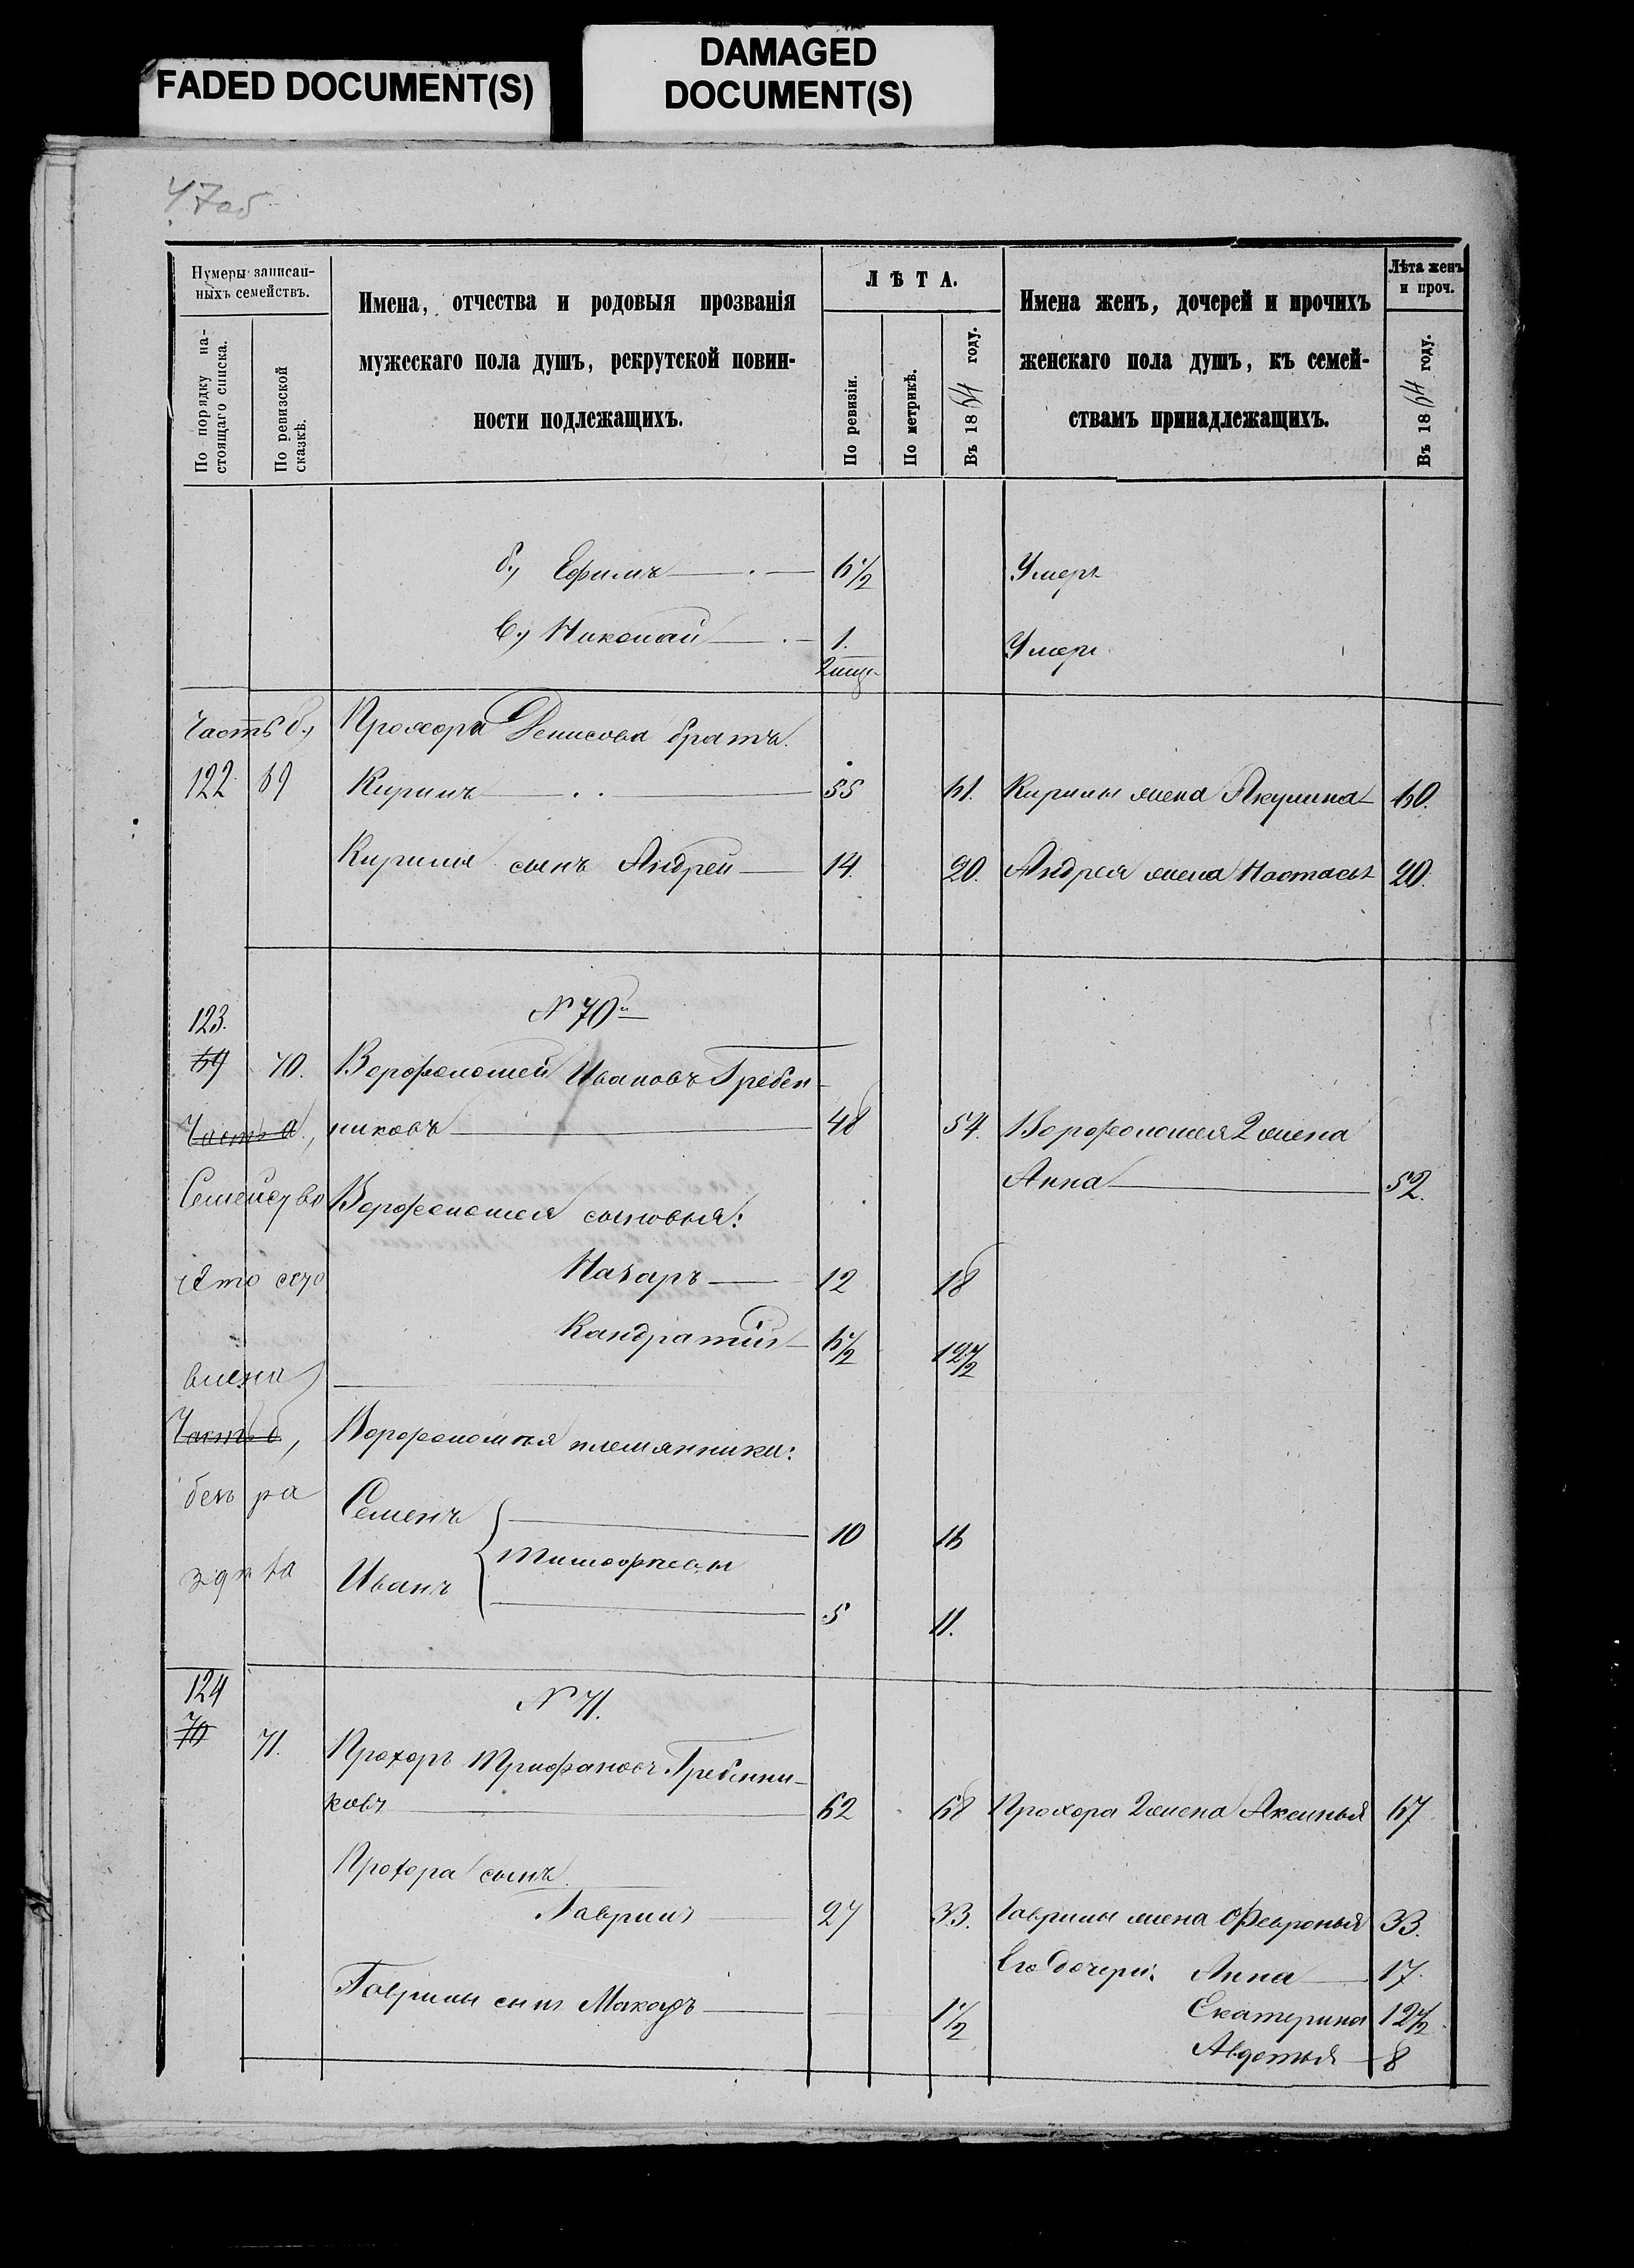 FADED DOCUMENT(S)
DAMAGED
DOCUMENT(S)
47об
Нумеры записан-
ныхъ семействъ.
По порядку на-
стоящаго списка.
По ревизской
сказкѣ.
Имена, отчества и родовыя прозванія
мужескаго пола душъ, рекрутской повин-
ности подлежащихъ.
ЛѢТА.
По ревизіи.
По метрикѣ.
Въ 1864 году.
Имена женъ, дочерей и прочихъ
женскаго пола душъ, къ семей-
ствамъ принадлежащихъ.
Лѣта женъ
и проч.
Въ 1864 году.
б) Ефимъ 6 1/2 Умеръ
в) Николай 1. Умеръ
Часть б) Прохора Денисова братъ.
122 69 Кирилъ 55 61. Кирилы жена Акулина 60.
Кирилы сынъ Андрей 14 20. Андрея жена Настасья 20.
123. № 70й
69 70. Ворфоломей Ивановъ Гребен-
Часть а, никовъ 48 54. Ворфоломея 2 жена
Анна 52.
Семейство Ворфоломея сыновья:
Назаръ 12 18
Кандратій 6 1/2 12 1/2
Часть б, Ворфоломея племянники:
без ра
Семенъ 10 16
Тимофеевы
Иванъ 5 11.
124 № 71.
70 71. Прохоръ Трифановъ Гребенни-
ковъ 62 68 Прохора 2 жена Аксинья 67
Прохора сынъ
Гаврилъ 27 33. Гаврилы жена Февронья 33.
Его дочери: Анна 17.
Гаврилы сынъ Макаръ 1 1/2 Екатерина 12 1/2
Авдотья 8